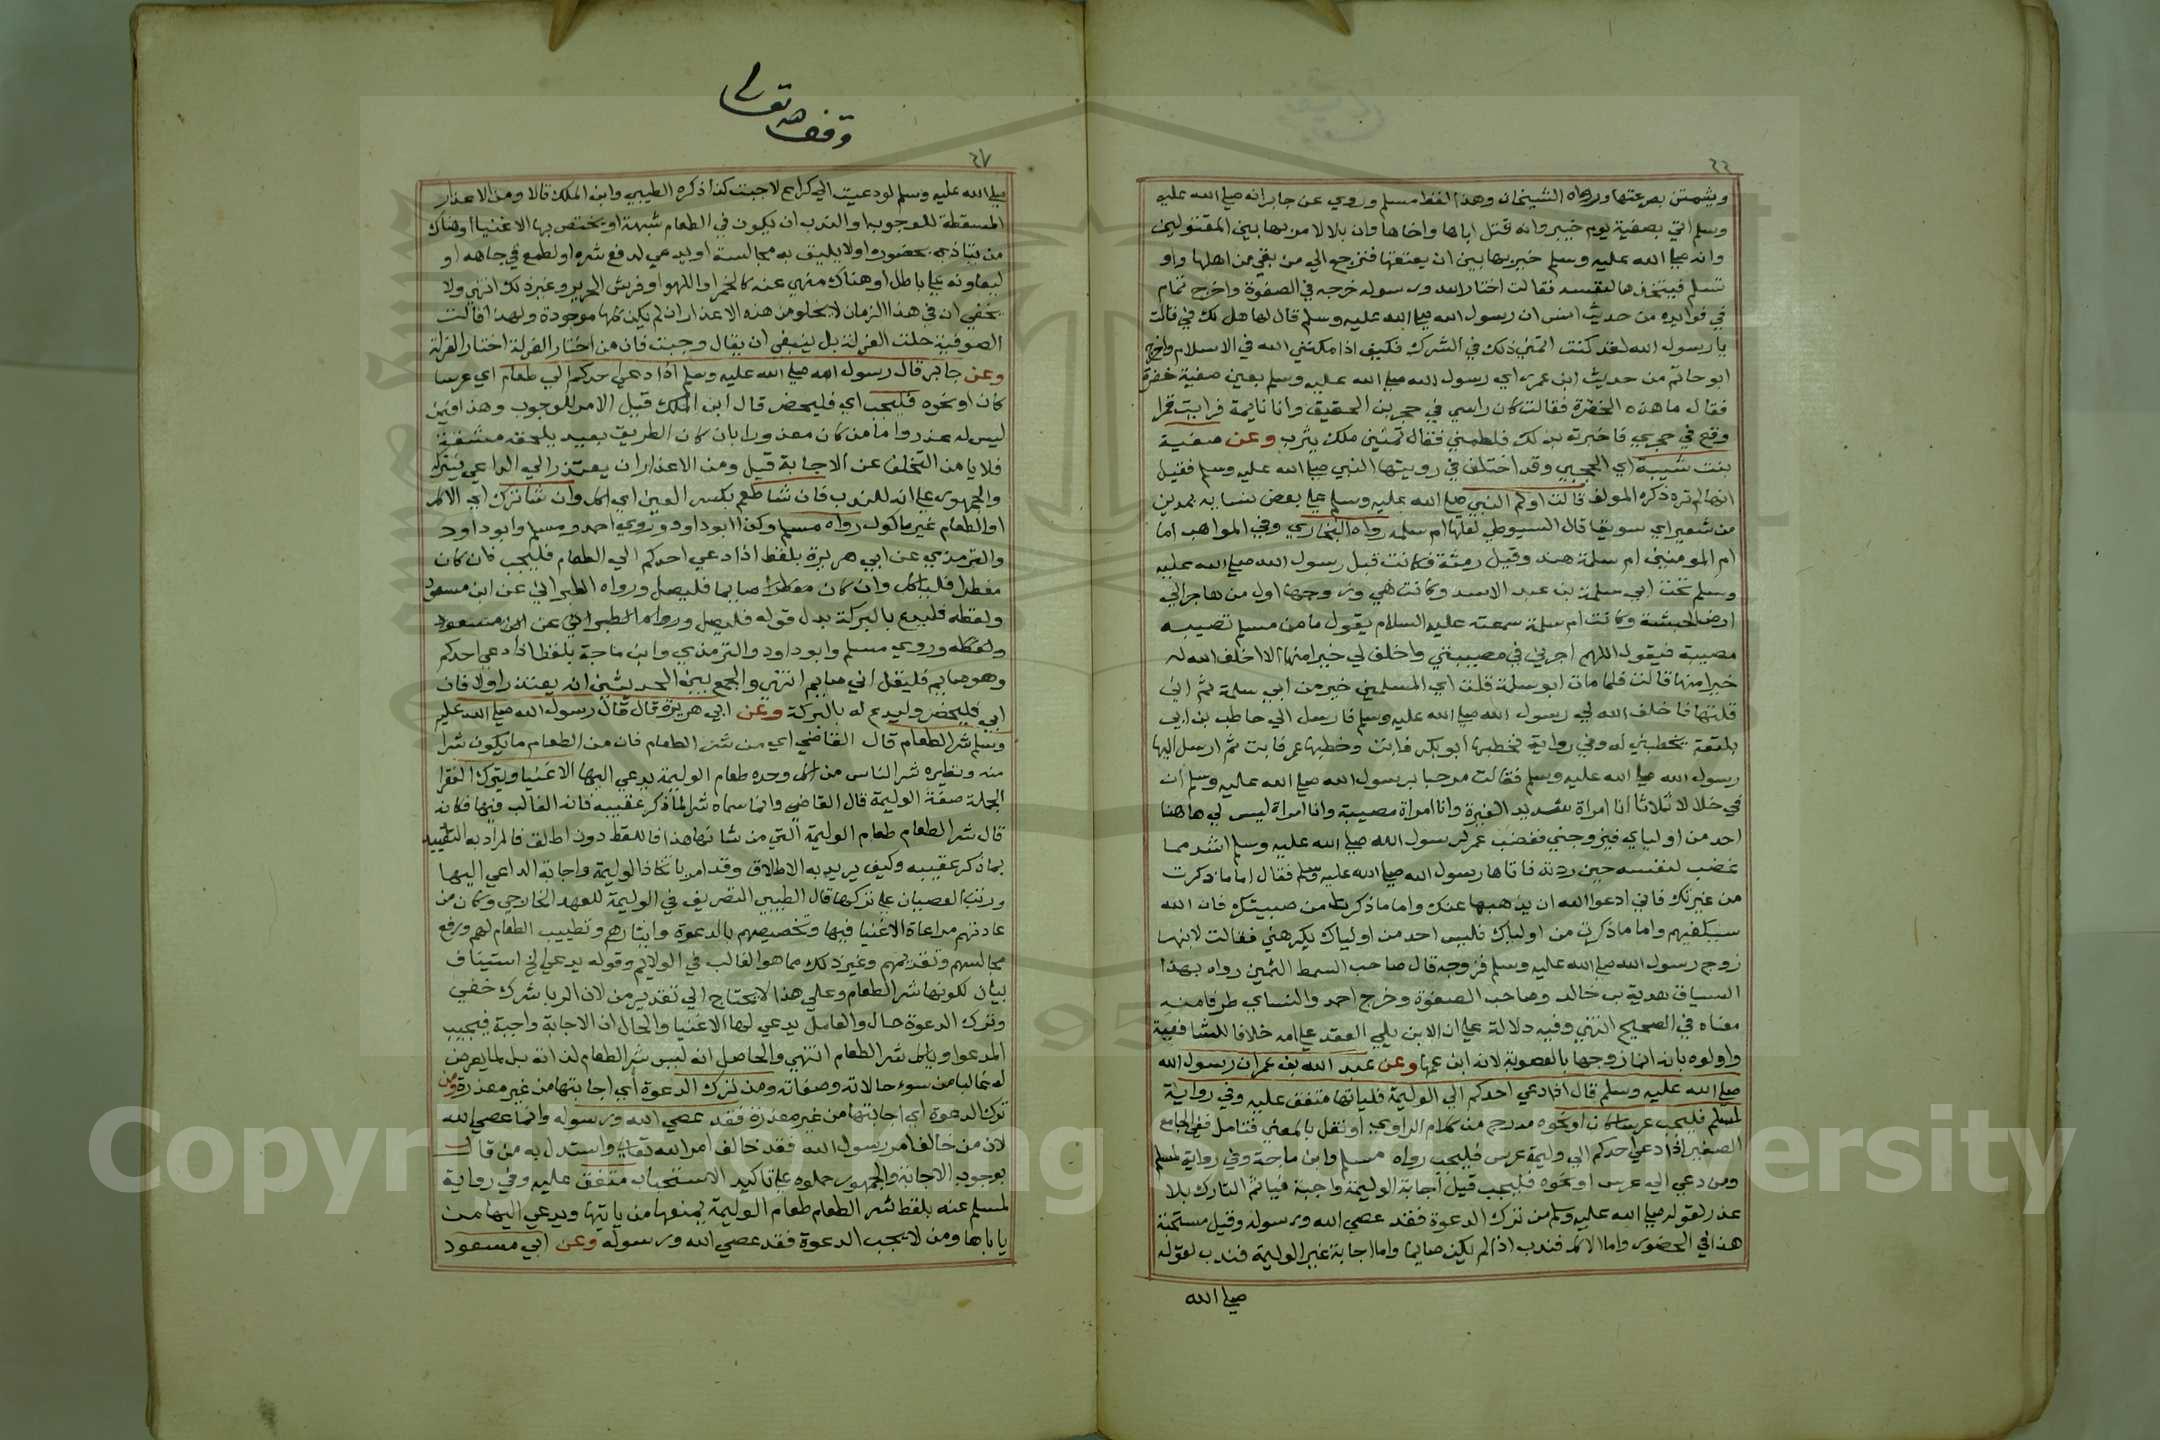 ٤٤
ويشمتن بصرعتها ورواه الشيخان وهذا لفظ مسلم وروي عن جابر انه صلى الله عليه
وسلم اتي بصفية يوم خيبر وانه قتل اباها واخاها وان بلالا مر بها بين المقتولين
وانه صلى الله عليه وسلم خيرها بين ان يعتقها فترجع الي من بقي من اهلها او
تسلم فيتخذها لنفسه فقالت اختار الله ورسوله خرجه في الصفوة واخرج تمام
في فوايده من حديث انس ان رسول الله صلى الله عليه وسلم قال لها هل لك في قالت
يا رسول الله لقد كنت اتمني ذلك في الشرك فكيف اذا مكنني الله في الاسلام واخرج
ابو حاتم من حديث ابن عمر راي رسول الله صلى الله عليه وسلم بعين صفية خضرة
فقال ما هذه الخضرة فقالت كان راسي في حجر بن الحقيق وانا نايمة فرايت قمرا
وقع في حجري فاخبرته بذلك فلطمني فقال تمنين ملك يثرب وعن صفية
بنت شيبة اي الحجبي وقد اختلف في رويتها النبي صلى الله عليه وسلم فقيل
انها لم تره ذكره المولف قالت اولم النبي صلى الله عليه وسلم على بعض نسايه بمدين
من شعير اي سويقا قال السيوطي لعلها ام سلمه رواه البخاري وفي المواهب اما
ام المومنين ام سلمة هند وقيل رمثة فكانت قبل رسول الله صلى الله عليه
وسلم تحت ابي سلمة بن عبد الاسد وكانت هي وزوجها اول من هاجر الي
ارض الحبشة وكانت ام سلمة سمعته عليه السلام يقول ما من مسلم تصيبه
مصيبة فيقول اللهم اجرني في مصيبتي واخلف لي خيرا منها الا اخلف الله له
خيرا منها قالت فلما مات ابو سلمة قلت اي المسلمين خير من ابي سلمة ثم اني
قلتها فاخلف الله لي رسول الله صلى الله عليه وسلم فارسل الي حاطب بن ابي
بلتعة يخطبني له وفي رواية فخطبها ابو بكر فابت وخطبها عمر فابت ثم ارسل اليها
رسول الله صلى الله عليه وسلم فقالت مرحبا برسول الله صلى الله عليه وسلم ان
في خلالا ثلاثا انا امراة شديد الغيرة وانا امراة مصيبة وانا امراة ليس لي هاهنا
احد من اولياي فيزوجني فغضب عمر لرسول الله صلى الله عليه وسلم اشد مما
غضب لنفسه حين ردته فاتاها رسول الله صلى الله عليه وسلم فقال اما ما ذكرت
من غيرتك فاني ادعوا الله ان يذهبها عنك واما ما ذكرت من صبيتك فان الله
سيكفيهم واما ما ذكرت من اولياك فليس احد من اولياك يكرهني فقالت لابنها
زوج رسول الله صلى الله عليه وسلم فزوجه قال صاحب السمط الثمين رواه بهذا
السياق هدبة بن خالد وصاحب الصفوة وخرج احمد والنساي طرفا منه
معناه في الصحيح انتهي وفيه دلالة علي ان الابن يلي العقد علي امه خلافا للشافعية
واولوه بانه انما زوجها بالعصوبة لانه ابن عمها وعن عبد الله بن عمر ان رسول الله
صلى الله عليه وسلم قال اذا دعي احدكم الي الوليمة فلياتها متفق عليه وفي رواية
لمسلم فليجب عرسا كان او نحوه مدرج من كلام الراوي او نقل بالمعني فتامل ففي الجامع
الصغير اذا دعي احدكم الي وليمة عرس فليجب رواه مسلم وابن ماجة وفي رواية لمسلم
ومن دعي الي عرس او نحوه فليجب قيل اجابة الوليمة واجبة فياثم التارك بلا
عذر لقوله صلى الله عليه وسلم من ترك الدعوة فقد عصي الله ورسوله وقيل مستحبة
هذا في الحضور واما الاكل فندب اذا لم يكن صايما واما اجابة غير الوليمة فندب لقوله
صلى الله
وقف لله تعالى
صلى الله عليه وسلم لو دعيت الي كراع لاجبت كذا ذكره الطيبي وابن الملك قالا ومن الاعذار
المسقطة للوجوب او الندب ان يكون في الطعام شبهة او يختص بها الاغنيا او هناك
من يتاذي بحضوره او لا يليق به مجالسته او يدعي لدفع شره او لطمع في جاهه او
ليعاونه علي باطل او هناك منهي عنه كالخمر او اللهو او فرش الحرير وغير ذلك انتهي ولا
يخفي ان في هذا الزمان لا يخلو من هذه الاعذار ان لم يكن كلها موجودة ولهذا قالت
الصوفية حلت العزلة بل ينبغي ان يقال وجبت فان من اختار العزلة اختار العزلة
وعن جابر قال رسول الله صلى الله عليه وسلم اذا دعي احدكم الي طعام اي عرسا
كان او نحوه فليجب اي فليحضر قال ابن الملك قيل الامر للوجوب وهذا فيمن
ليس له عذر واما من كان معذورا بان كان الطريق بعيد يلحقه مشقة
فلا باس من التخلف عن الاجابة قيل ومن الاعذار ان يعتذر الي الداعي فيتركه
والجمهور علي انه للندب فان شا طعم بكسر العين اي اكل وان شا ترك اي الاكل
او الطعام غير ماكول رواه مسلم وكذا ابو داود وروي احمد ومسلم وابو داود
والترمذي عن ابي هريرة بلفظ اذا دعي احدكم الي الطعام فليجب فان كان
مفطرا فلياكل وان كان صايما فليصل ورواه الطبراني عن ابن مسعود
ولفظه فليدع بالبركة بدل قوله فليصل ورواه الطبراني عن ابن مسعود
ولفظه وروي مسلم وابو داود والترمذي وابن ماجة بلفظ اذا دعي احدكم
وهو صايم فليقل اني صايم انتهي والجمع بين الحديثين انه يعتذر اولا فان
ابي فليحضر وليدع له بالبركة وعن ابي هريرة قال قال رسول الله صلى الله عليه
وسلم شر الطعام قال القاضي اي من شر الطعام فان من الطعام ما يكون شرا
منه ونظيره شر الناس من اكل وحده طعام الوليمة يدعي اليها الاغنيا ويترك الفقرا
الجملة صفة الوليمة قال القاضي وانما سماه شرا لما ذكر عقيبه فانه الغالب فيها فكانه
قال شر الطعام طعام الوليمة التي من شانها هذا فاللفظ دون اطلق فالمراد به التقييد
بما ذكر عقيبه وكيف يريد به الاطلاق وقد امر باتخاذ الوليمة واجابة الداعي اليها
ورتب العصيان علي تركها قال الطيبي التعريف في الوليمة للعهد الخارجي وكان من
عادتهم مراعاة الاغنيا فيها وتخصيصهم بالدعوة وايثارهم وتطييب الطعام لهم ورفع
مجالسهم وتقديمهم وغير ذلك مما هو الغالب في الولايم وقوله يدعي الخ استيناف
بيان لكونها شر الطعام وعلي هذا لا يحتاج الي تقدير من لان الريا شرك خفي
وترك الدعوة حال والعامل يدعي لها الاغنيا والحال ان الاجابة واجبة فيجيب
المدعو وياكل شر الطعام انتهي والحاصل انه ليس شر الطعام لذاته بل لما يعرض
له غالبا من سوء حالاته وصفاته ومن ترك الدعوة اي اجابتها من غير معذرة ومن
ترك الدعوة اي اجابتها من غير معذرة فقد عصي الله ورسوله وانما عصي الله
لان من خالف امر رسول الله فقد خالف امر الله تعالى واستدل به من قال
بوجوب الاجابة والجمهور حملوه علي تاكيد الاستحباب متفق عليه وفي رواية
لمسلم عنه بلفظ شر الطعام طعام الوليمة يمنعها من ياتيها ويدعي اليها من
ياباها ومن لا يجب الدعوة فقد عصي الله ورسوله وعن ابي مسعود